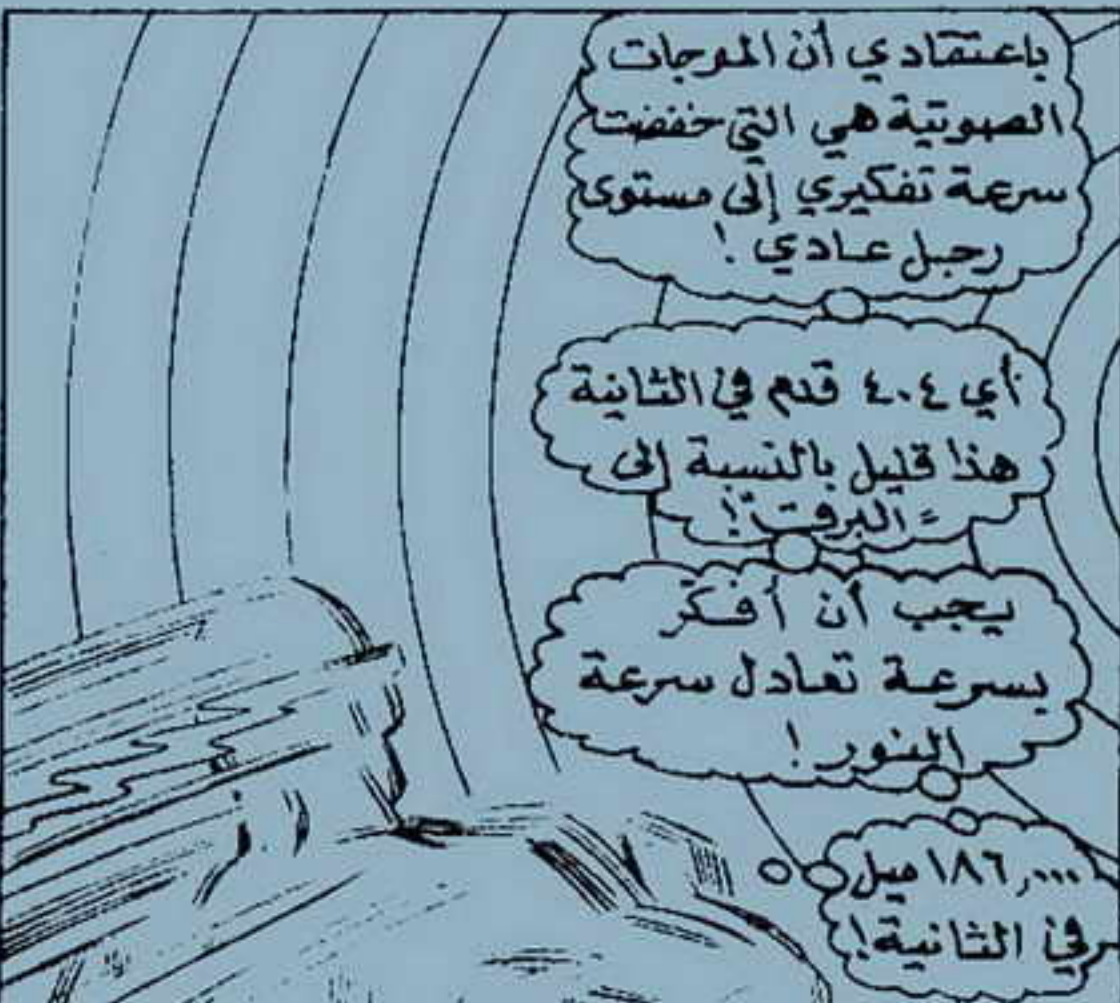 باعتقادي أن الموجات
الصوتية هي التي خفضت
سرعة تفكيري إلى مستوى
رجل عادي !
أي ٤٠٤ قدم في الثانية
هذا قليل بالنسبة إلى
"البرق"!
يجب أن أفكر
بسرعة تعادل سرعة
النور !
١٨٦,٠٠٠ ميل
في الثانية!